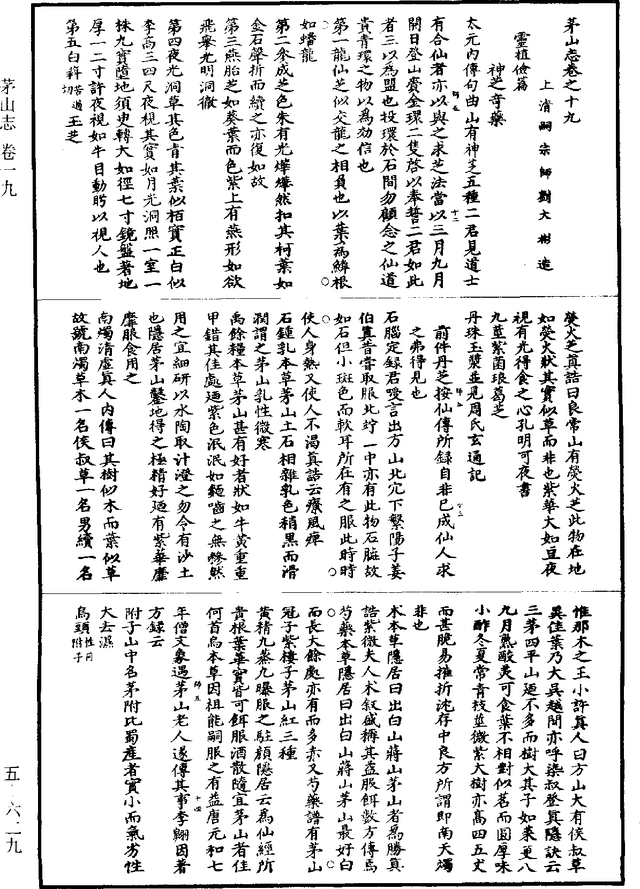 茅山志卷之十九
上清嗣宗師劉大彬造
靈植儉篇
神芝奇藥
太元內傳句曲山有神芝五種二君見道士
有合仙者亦以與之求芝法當以三月九月
開日登山齎金環二隻啓以奉誓二君如此
者三以為盟也投環於石間勿顧念之仙道
貴青環之物以為効信也
第一龍仙芝似交龍之相負也以葉為鱗根
如蟠龍
第二參成芝色朱有光燁燁然扣其柯葉如
金石聲折而續之亦復如故
第三燕胎芝如葵葉而色紫上有燕形如欲
飛舉光明洞徹
第四夜光洞草其色青其葉似栢實正白似
李高三四尺夜視其實如月光洞照一室一
株九實墮地須史轉大如徑七寸鏡盤著地
厚一二寸許夜視如牛目動眄以視人也
第五白科玉芝
熒火芝真誥曰良常山有熒火芝此物在地
如熒火狀其實似草而非也紫華大如豆夜
視有光得食之心孔明可夜書
九莖紫菌琅葛芝
丹珠玉漿並見周氏玄通記
前件丹芝按仙傳所録自非已成仙人求
之弗得見也
石腦定録君受言出方山北穴下繁陽子姜
伯真昔嘗取服此竚一中亦有此物石腦故
如石但小斑色而軟耳所在有之服此時時
使人身熱又使人不渴真誥云療風痺
石鍾乳本草茅山土石相雜乳色稍黑而滑
潤謂之茅山乳性微寒
禹餘糧本草茅山甚有好者狀如牛黃重重
甲錯其佳處廼紫色泯泯如麵嚙之無磣然
用之宜細研以水陶取汁澄之勿令有沙土
也隱居茅山鑿地得之極精好廼有紫華靡
靡服食用之
南燭清虛真人內傳曰其樹似木而葉似草
故號南燭草木一名侯叔草一名男續一名
惟那木之王小許真人曰方山大有侯叔草
異佳葉乃大吳越間亦呼染叔登真隱訣云
三第四平山廼不多而樹大其子如茱萸八
九月熟酸美可食葉不相對似茗而圓厚味
小酢冬夏常青枝莖微紫大樹亦高四五丈
而甚脆易摧折沈存中良方所謂即南天燭
非也
术本草隱居曰出白山蔣山茅山者為勝真
誥紫微夫人术叙盛稱其益服餌數方傳焉
芍藥本草隱居曰出白山蔣山茅山最好白
而長大餘處亦有而多赤又芍藥譜有茅山
冠子紫樓子茅山紅三種
黃精九蒸九曝服之駐顏隱居云為仙經所
貴根葉華實皆可餌服酒散隨宜茅山者佳
何首烏本草因祖能嗣服之有益唐元和七
年僧文象遇茅山老人遂傳其事李翱因著
方録云
附子山中名茅附比蜀產者實小而氣劣性
大去濕
烏頭性同附子
茅山志 卷一九
五·六·二九